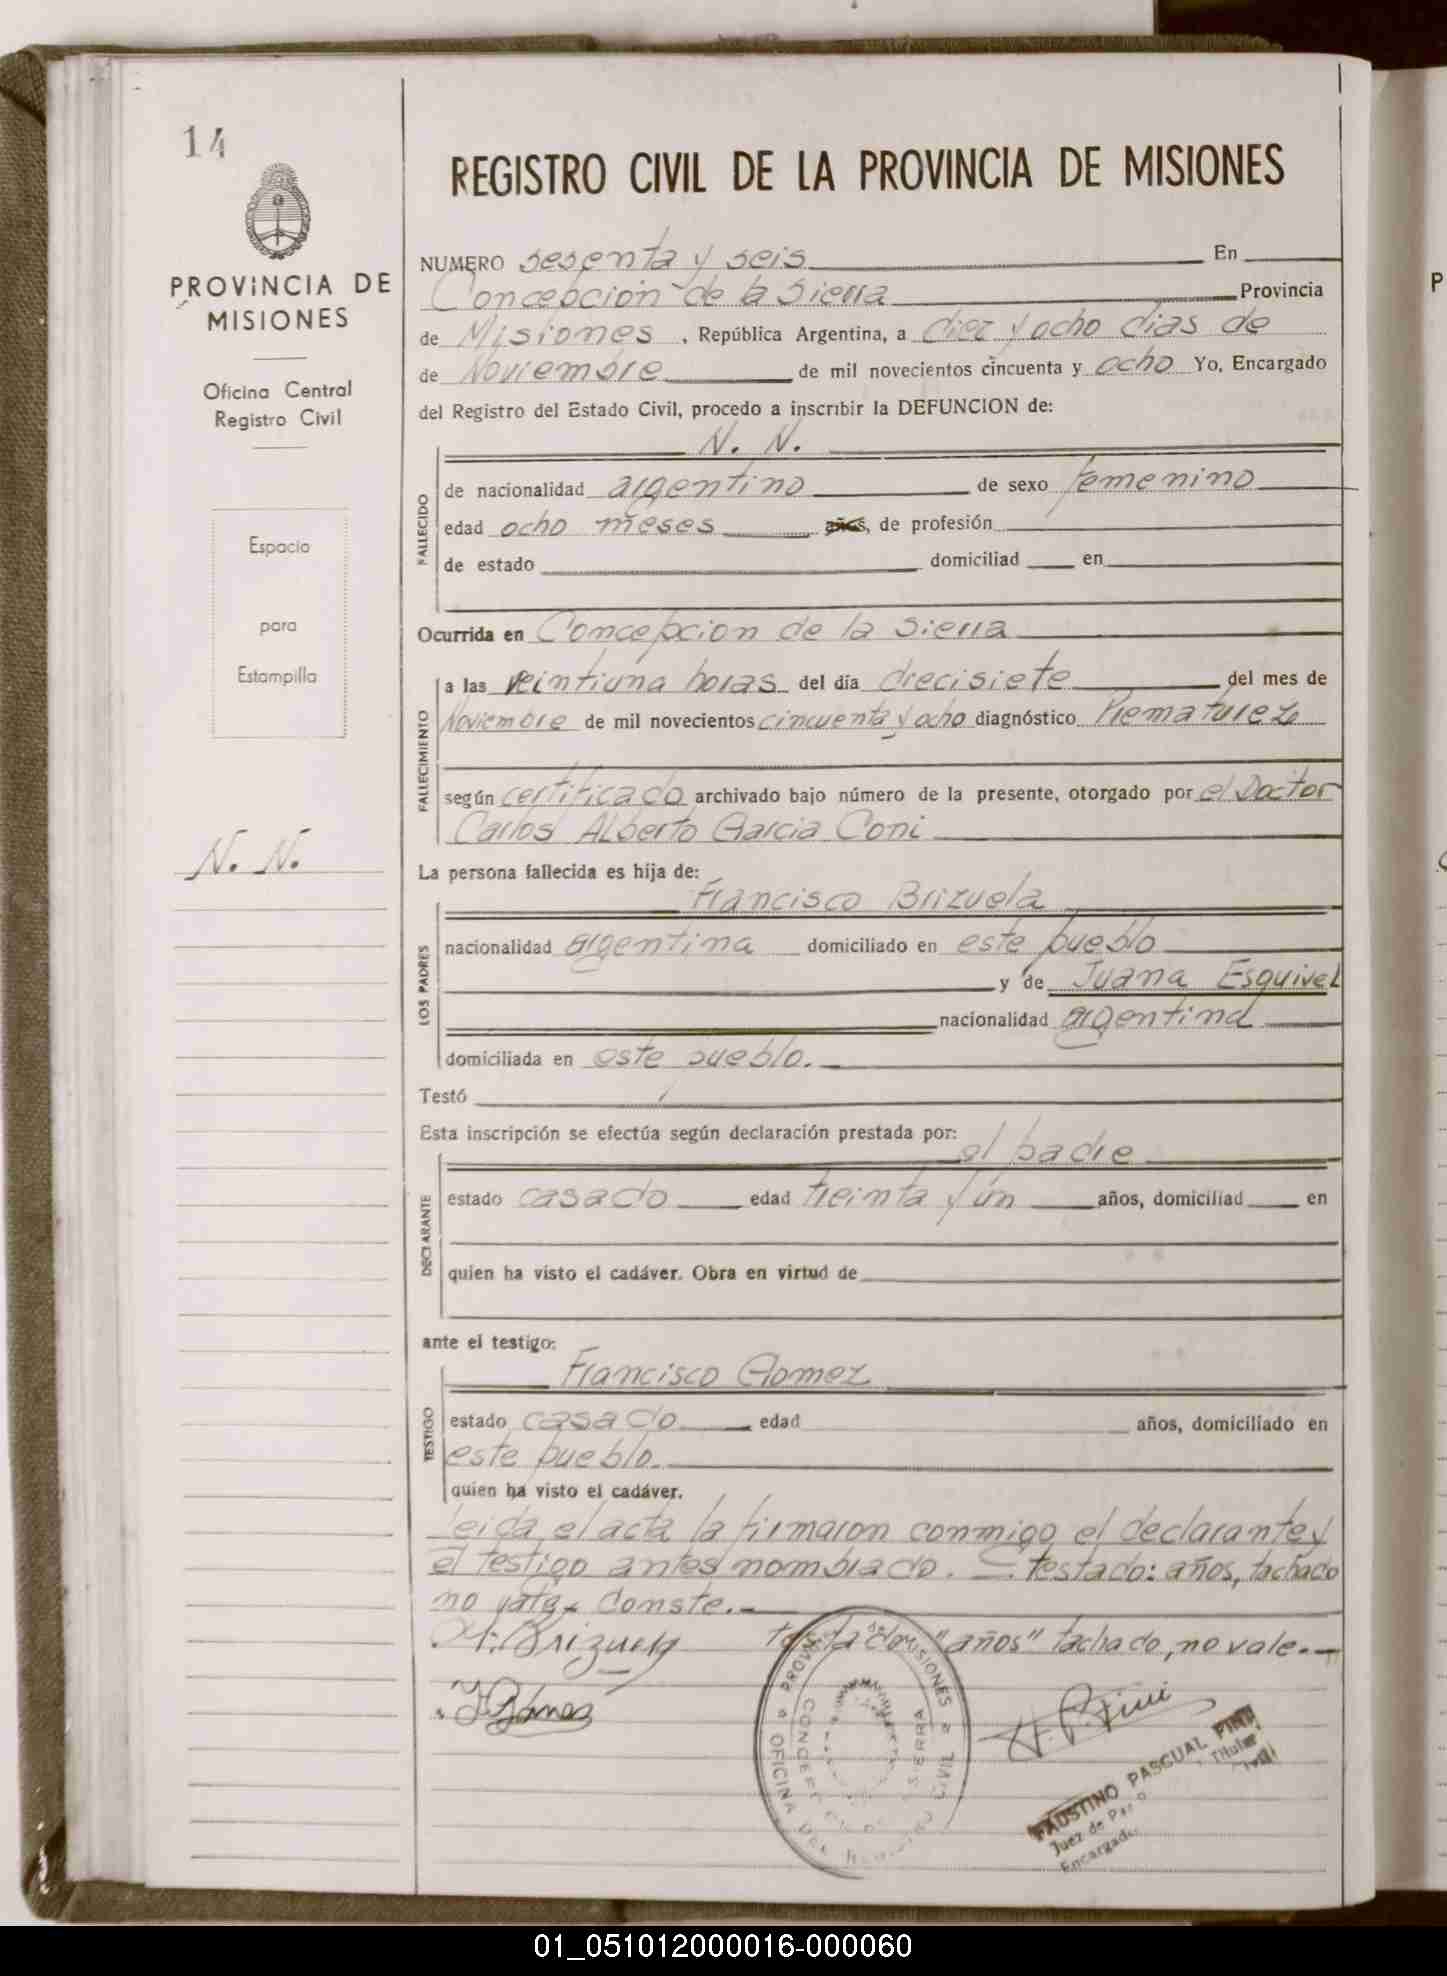 14
PROVINCIA DE
MISIONES
Oficina Central
Registro Civil
Espacio
para
Estampilla
N. N.
REGISTRO CIVIL DE LA PROVINCIA DE MISIONES
NUMERO sesenta y seis En
Concepción de la Sierra Provincia
de Misiones, República Argentina, a diez y ocho dias de
de Noviembre de mil novecientos cincuenta y ocho Yo, Encargado
del Registro del Estado Civil, procedo a inscribir la DEFUNCION de:
N. N.
FALLECIDO
de nacionalidad argentino de sexo femenino
edad ocho meses años, de profesión
de estado domiciliad en
Ocurrida en Concepcion de la Sierra
FALLECIMIENTO
a las veintiuna horas del día diecisiete del mes de
Noviembre de mil novecientos cincuenta y ocho diagnóstico Prematurez
según certificado archivado bajo número de la presente, otorgado por el Doctor
Carlos Alberto Garcia Coni
La persona fallecida es hija de:
Francisco Brizuela
LOS PADRES
nacionalidad argentina domiciliado en este pueblo
y de Juana Esquivel
nacionalidad argentina
domiciliada en este pueblo.
Testó
Esta inscripción se efectúa según declaración prestada por:
el padre
DECLARANTE
estado casado edad treinta y un años, domiciliad en
quien ha visto el cadáver. Obra en virtud de
ante el testigo:
Francisco Gomez
TESTIGO
estado casado edad años, domiciliado en
este pueblo.
quien ha visto el cadáver.
Leida el acta la firmaron conmigo el declarante y
el testigo antes nombrado. Testado: años, tachado
no vale. Conste.
Brizuela testado "años" tachado, no vale.
F. Gomez
F. P. Pini
OFICINA DEL REGISTRO CIVIL PROV. DE MISIONES
CONCEPCION DE LA SIERRA
FAUSTINO PASCUAL PINI
Juez de Paz Titular
Encargado
P
01_051012000016-000060